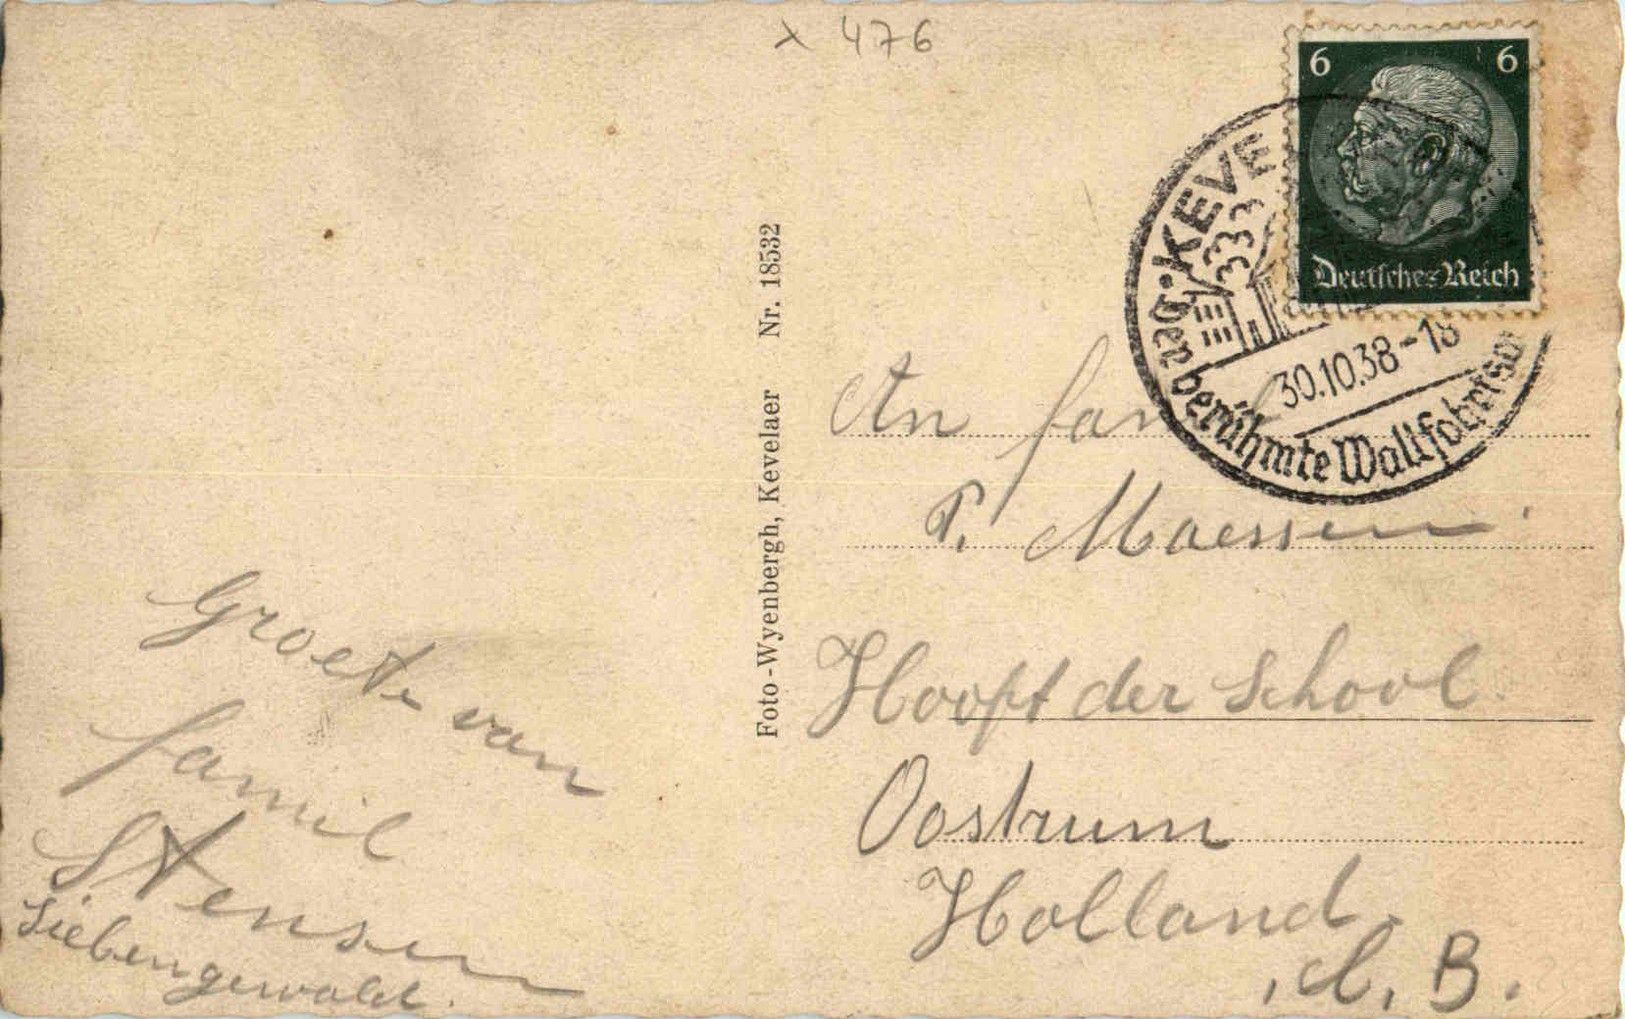 x 476
6 6
Deutsches Reich
KEVE
30.10.38-18
Der berühmte Wallfahrtsor
Foto-Wyenbergh, Kevelaer Nr. 18532
An fam
P. Maessen.
Hooft der School.
Oostrum
Holland.
B.
Groete van
famil
Stensen
Siebengewald.